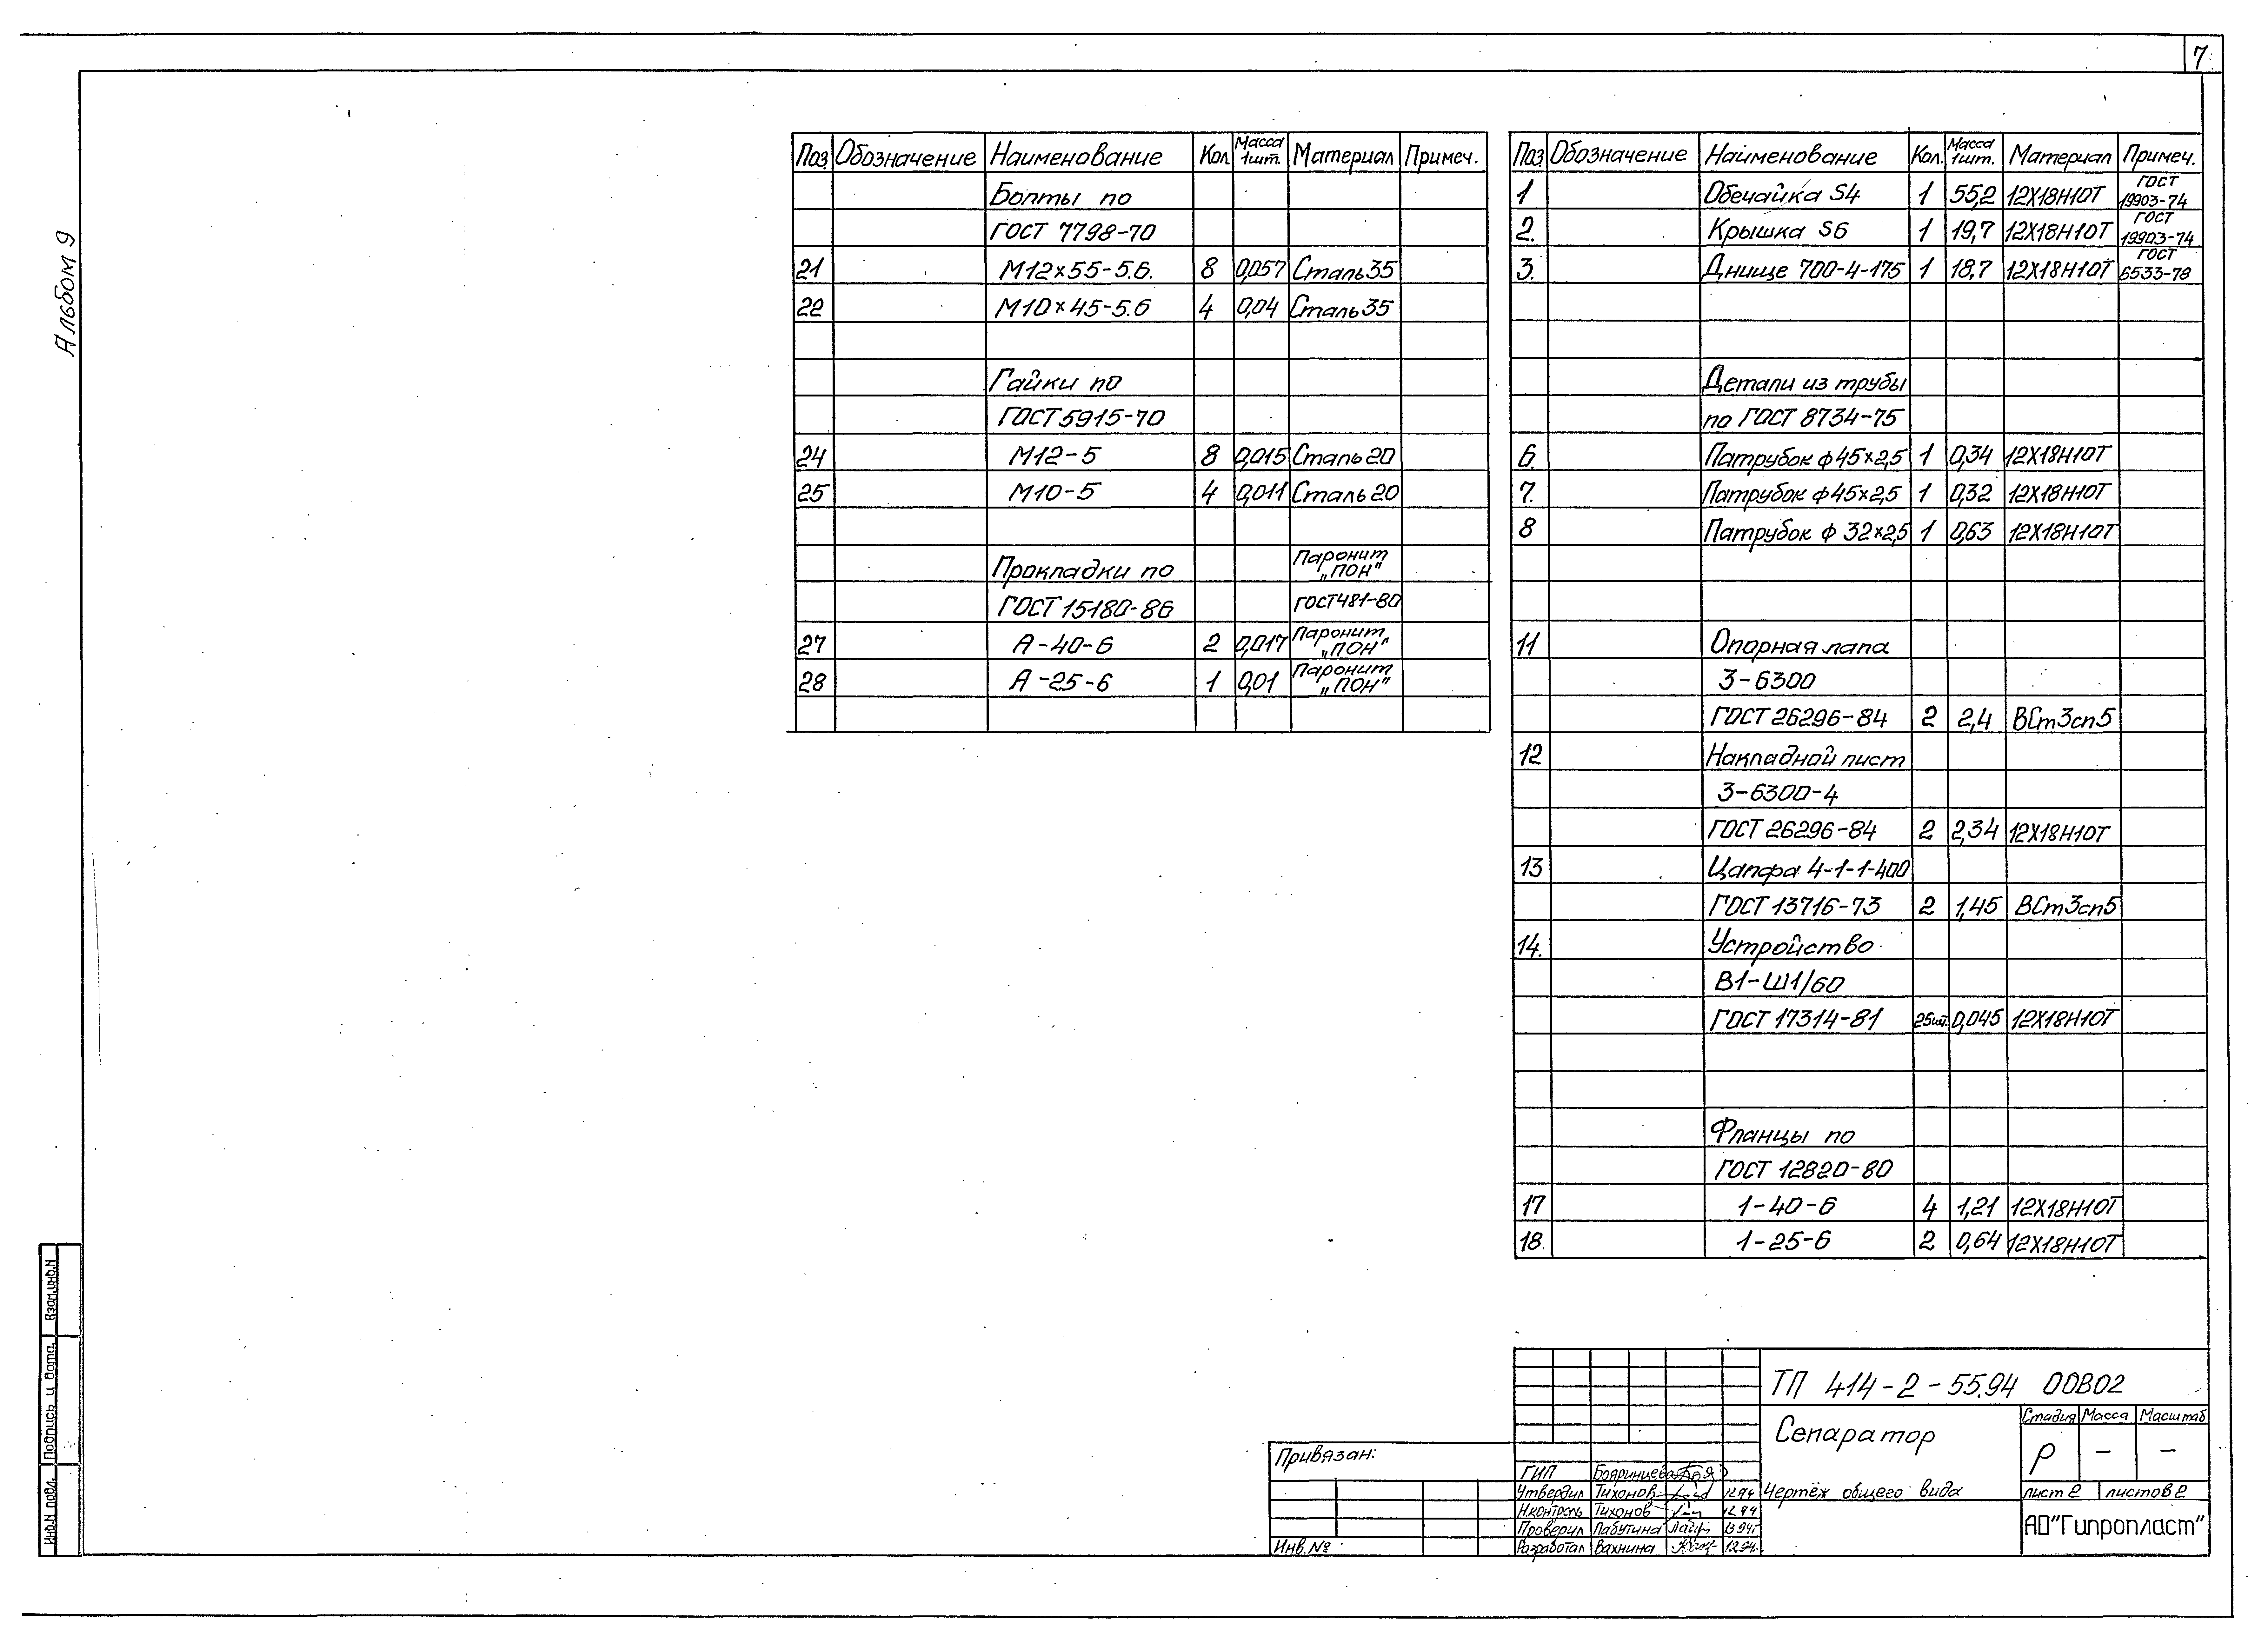 7
Альбом 9
Поз Обозначение Наименование Кол Масса 1шт. Материал Примеч.
Болты по
ГОСТ 7798-70
21 М12×55-5.6. 8 0,057 Сталь 35
22 М10×45-5.6 4 0,04 Сталь 35
Гайки по
ГОСТ 5915-70
24 М12-5 8 0,015 Сталь 20
25 М10-5 4 0,011 Сталь 20
Прокладки по Паронит „ПОН"
ГОСТ 15180-86 ГОСТ 481-80
27 А-40-6 2 0,017 Паронит „ПОН"
28 А-25-6 1 0,01 Паронит „ПОН"
Поз Обозначение Наименование Кол. Масса 1шт. Материал Примеч.
1 Обечайка S4 1 55,2 12Х18Н10Т ГОСТ 19903-74
2. Крышка S6 1 19,7 12Х18Н10Т ГОСТ 19903-74
3. Днище 700-4-175 1 18,7 12Х18Н10Т ГОСТ 6533-78
Детали из трубы
по ГОСТ 8734-75
6. Патрубок ф45×2,5 1 0,34 12Х18Н10Т
7. Патрубок ф45×2,5 1 0,32 12Х18Н10Т
8 Патрубок ф 32×2,5 1 0,63 12Х18Н10Т
11 Опорная лапа
3-6300
ГОСТ 26296-84 2 2,4 ВСт3сп5
12 Накладной лист
3-6300-4
ГОСТ 26296-84 2 2,34 12Х18Н10Т
13 Цапфа 4-1-1-400
ГОСТ 13716-73 2 1,45 ВСт3сп5
14. Устройство
В1-Ш1/60
ГОСТ 17314-81 25шт. 0,045 12Х18Н10Т
Фланцы по
ГОСТ 12820-80
17 1-40-6 4 1,21 12Х18Н10Т
18. 1-25-6 2 0,64 12Х18Н10Т
Взам.инв.N
Подпись и дата.
Инв.N подл.
Привязан:
Инв.№
ТП 414-2-55.94 00В02
Сепаратор
Чертёж общего вида
Стадия Масса Масштаб
Р – –
лист 2 листов 2
АО"Гипропласт"
ГИП Бояринцева
Утвердил Тихонов 12.94
Н.контроль Тихонов 12.94
Проверил Лабутина
Разработал Вахнина 12.94.